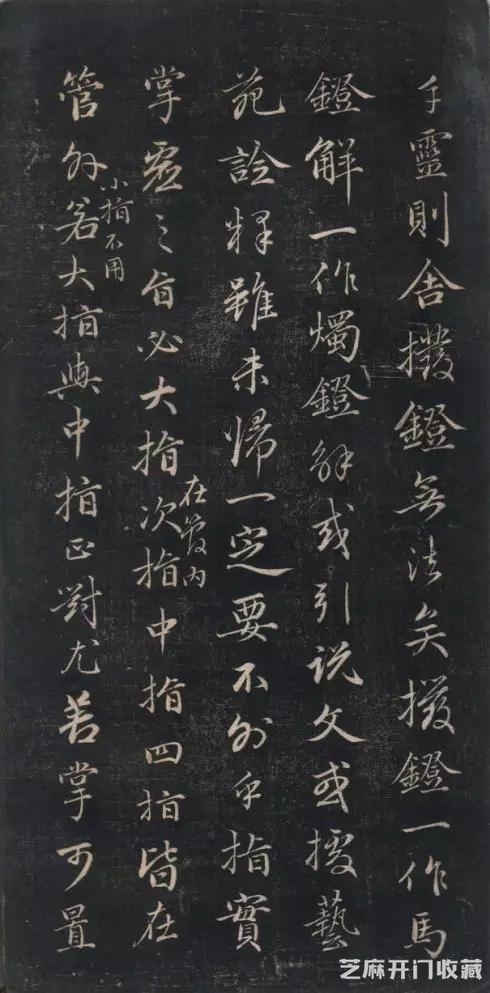 手靈則舍撥鐙無法矣撥鐙一作馬
鐙解一作燭鐙解或引說文或援藝
苑詮釋雖未歸一定要不外乎指實
掌虛之旨必大指次指中指四指皆在
在管內
管外若大指與中指正對尤善掌可置
小指不用
芝麻开门收藏